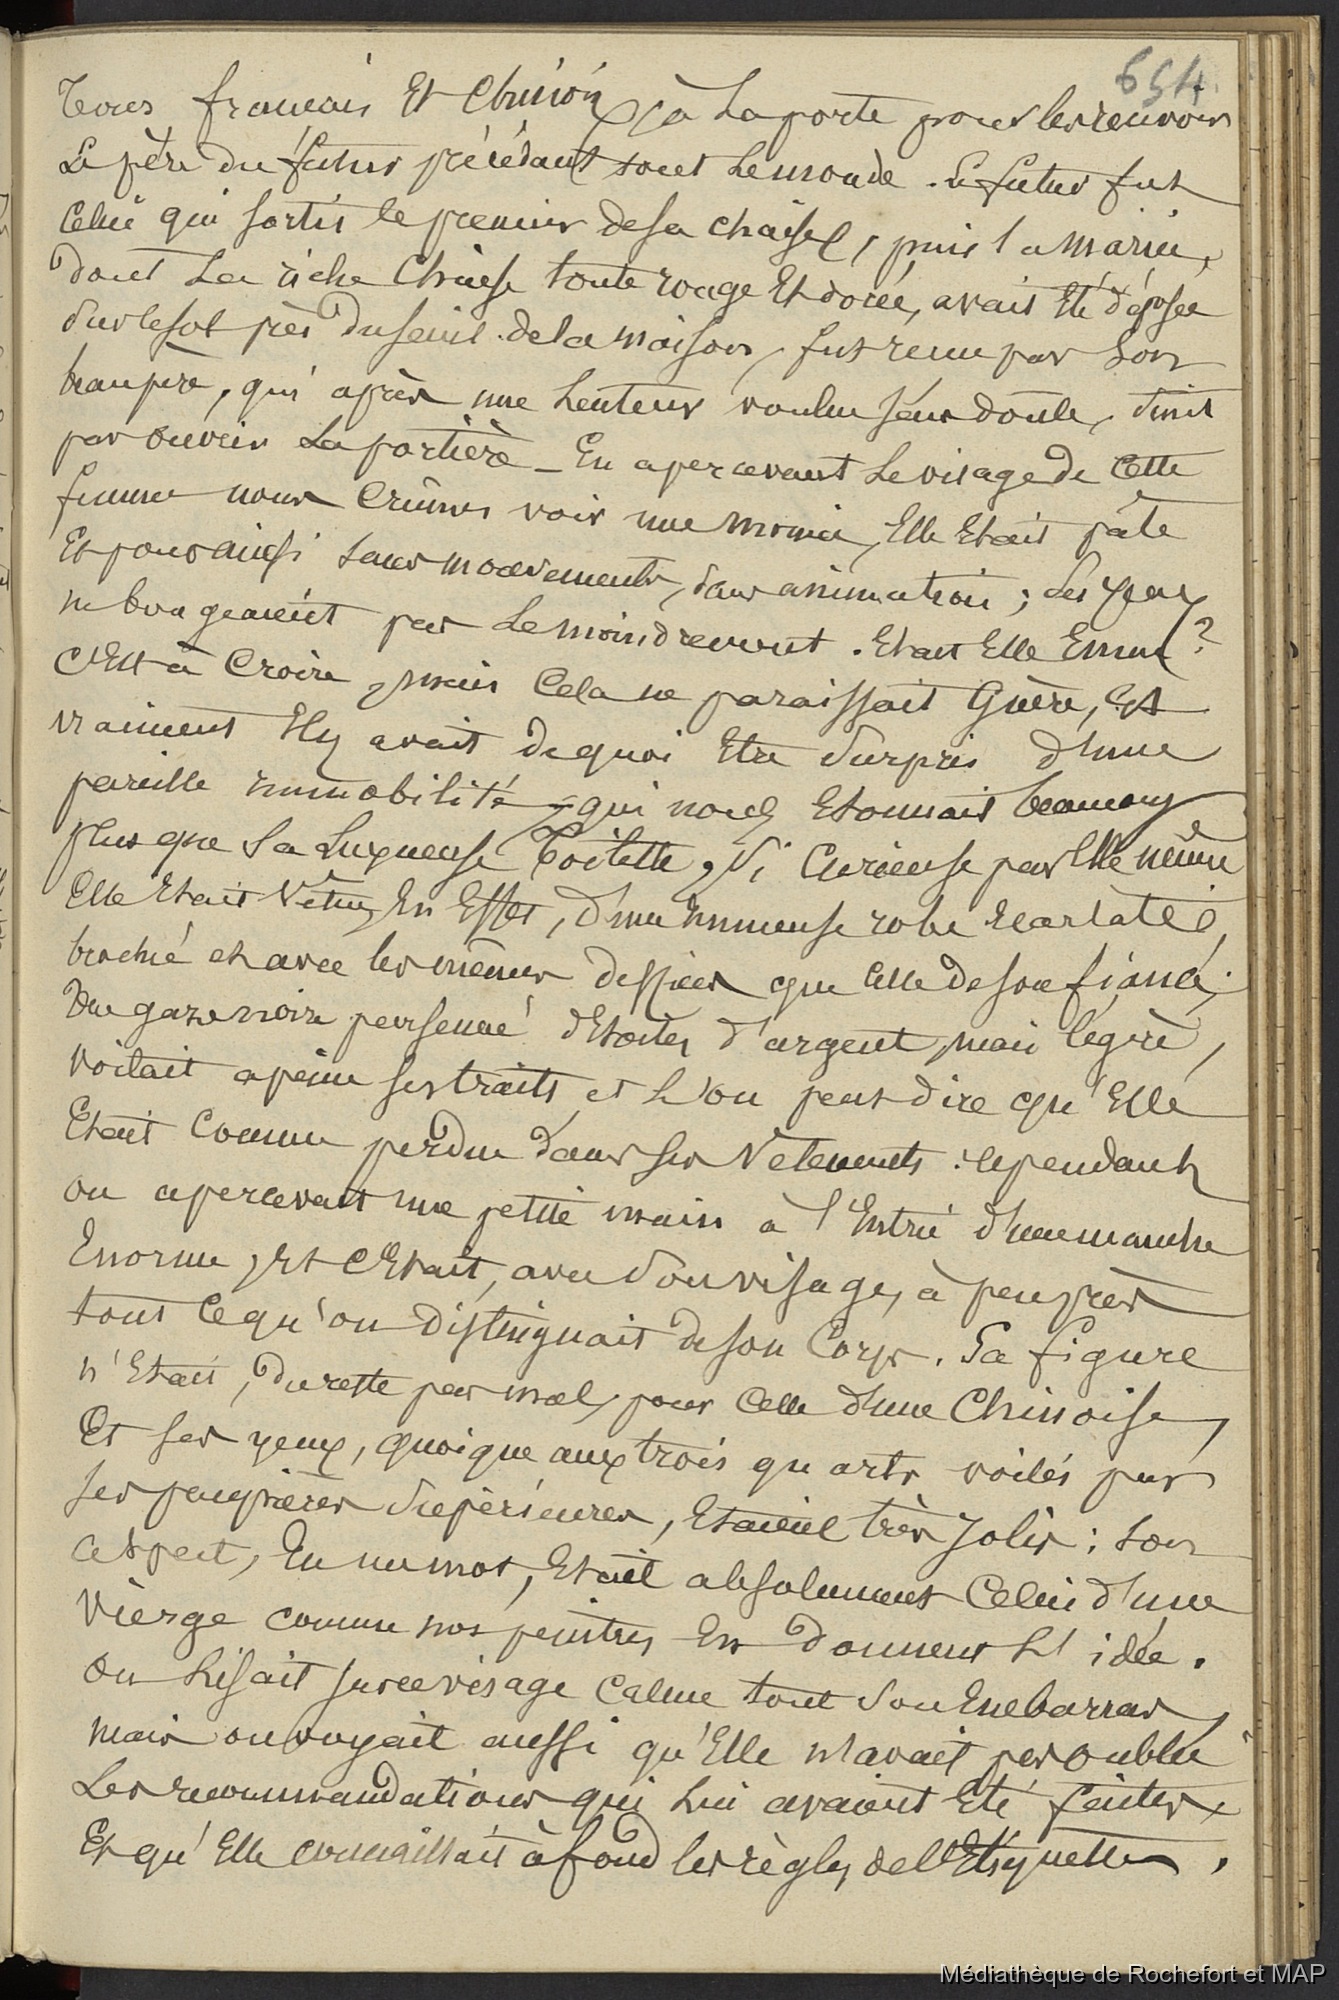 654
Tous français Et Chinois, à La porte pour les recevoir
Le père du futur précédant tout Le monde. Le futur fut
Celui qui sortit le premier de sa chaise, puis la mariée,
dont La riche Chaise toute rouge Et dorée, avait Eté déposée
sur le sol près du seuil de la maison, fut reçue par son
beau père, qui après une Lenteur voulue sans doute, finit
par ouvrir La portière _ En apercevant Le visage de Cette
femme nous Crûmes voir une momie, Elle Etait pâle
Et pour ainsi sans mouvements, sans animation ; Les yeux
ne bougeaient pas Le moindrement. Etait Elle Emue ?
C'Est à Croire, mais Cela ne paraissait Guère, Et
vraiment Il y avait de quoi Etre surpris d'une
pareille immobilité, qui nous Etonnait beaucoup
plus que Sa Luxueuse Toilette, si Curieuse par Elle même
Elle Etait Vêtue, En Effet, d'une immense robe Ecarlate,
broché et avec les mêmes dessins que Celle de son fiancé ;
Une gaze noire parsemé d'Etoiles d'argent, mais légère,
voilait à peine ses traits, et L'on peut dire qu'Elle
Etait Comme perdue dans ses Vêtements : cependant
on apercevait une petite main à l'Entrée d'une manche
Enorme, Et C'Etait, avec son visage, à peu près
tout Ce qu'on distinguait de son Corps. Sa figure
n'Etait, du reste pas mal, pour Celle d'une Chinoise,
Et ses yeux, quoique aux trois quarts voilés par
ses paupières supérieures, Etaient très Jolis ; son
aspect, En un mot, Etait absolument Celui d'une
Vierge comme nos peintres En donnent L'idée.
On Lisait sur ce visage Calme tout son Embarras,
mais on voyait aussi qu'Elle n'avait pas oublié
Les recommandations qui Lui avaient Eté faites,
Et qu'Elle connaissait à fond les règles de l'Etiquette.
Médiathèque de Rochefort et MAP